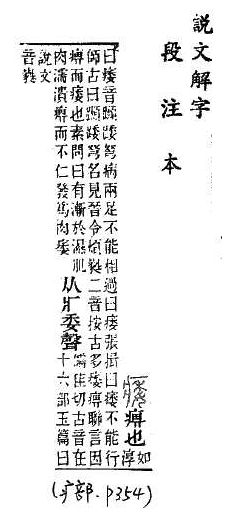 說文解字
段注本
痿
痹也
如淳
曰痿音蹞踒弩病兩足不能相過曰痿張揖曰痿不能行
師古曰蹞踒弩名見晉令煩蕤二音按古多痿痹聯言因
痹而痿也素問曰有漸於濕肌
肉濡漬痹而不仁發爲肉痿
从疒委聲
儒隹切古音在
十六部玉篇曰
說文
音蕤
(疒部. P354)